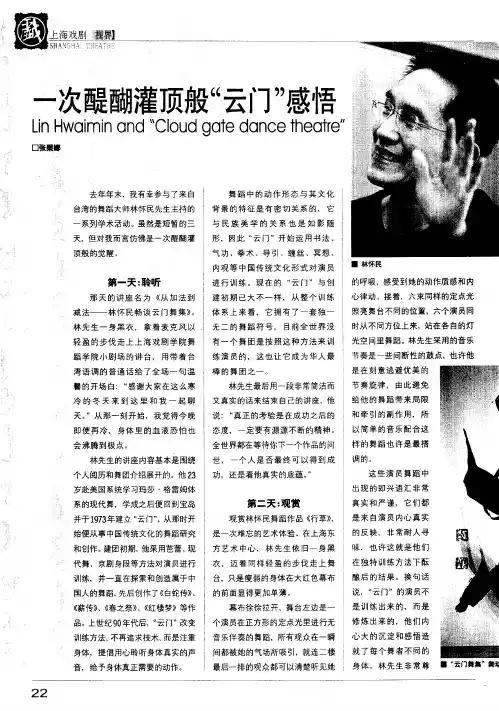 上海戏剧 [视界]
SHANGHAI THEATRE
一次醍醐灌顶般“云门”感悟
Lin Hwaimin and “Cloud gate dance theatre”
□张
娜
去年年末，我有幸参与了来自
台湾的舞蹈大师林怀民先生主持的
一系列学术活动。虽然是短暂的三
天，但对我而言仿佛是一次醍醐灌
顶般的觉醒。
第一天：聆听
那天的讲座名为《从加法到
减法——林怀民畅谈云门舞集》。
林先生一身黑衣，拿着麦克风以
轻盈的步伐走上上海戏剧学院舞
蹈学院小剧场的讲台，用带着台
湾语调的普通话给了全场一句温
馨的开场白：“感谢大家在这么寒
冷的冬天来到这里和我一起聊
天。”从那一刻开始，我觉得今晚
即便再冷，身体里的血液恐怕也
会沸腾到极点。
林先生的讲座内容基本是围绕
个人阅历和舞团介绍展开的。他23
岁赴美国系统学习玛莎·格雷姆体
系的现代舞，学成之后便回到宝岛
并于1973年建立“云门”，从那时开
始便从事中国传统文化的舞蹈研究
和创作。建团初期，他采用芭蕾、现
代舞、京剧身段等方法对演员进行
训练，并一直在探索和创造属于中
国人的舞蹈，先后创作了《白蛇传》、
《薪传》、《春之祭》、《红楼梦》等作
品。上世纪90年代后，“云门”改变
训练方法，不再追求技术，而是注重
身体，提倡用心聆听身体真实的声
音，给予身体真正需要的动作。
舞蹈中的动作形态与其文化
背景的特征是有密切关系的，它
与民族美学的关系也是如影随
形，因此“云门”开始运用书法、
气功、拳术、导引、缠丝、冥想、
内观等中国传统文化形式对演员
进行训练。现在的“云门”与创
建初期已大不一样，从整个训练
体系上来看，它拥有了一套独一
无二的舞蹈符号。目前全世界没
有一个舞团是按照这种方法来训
练演员的，这也让它成为华人最
棒的舞团之一。
林先生最后用一段非常简洁而
又真实的话来结束自己的讲座，他
说：“真正的考验是在成功之后的
态度，一定要有源源不断的精神。
全世界都在等待你下一个作品的问
世，一个人是否最终可以得到成
功，还是看他真实的底蕴。”
第二天：观赏
观赏林怀民舞蹈作品《行草》，
是一次难忘的艺术体验。在上海东
方艺术中心，林先生依旧一身黑
衣，迈着同样轻盈的步伐走上舞
台，只是瘦弱的身体在大红色幕布
的前面显得更加单薄。
幕布徐徐拉开，舞台左边是一
个演员在正方形的定点光里进行无
音乐伴奏的舞蹈，所有观众在一瞬
间都被她的气场所吸引，就连二楼
最后一排的观众都可以清楚听见她
■ 林怀民
的呼吸，感受到她的动作质感和内
心律动。接着，六束同样的定点光
照亮舞台不同的位置，六个演员同
时从不同方位上来，站在各自的灯
光空间里舞蹈。林先生采用的音乐
节奏是一些间断性的鼓点，也许他
是在刻意逃避优美的
节奏旋律，由此避免
给他的舞蹈带来局限
和牵引的副作用，所
以简单的音乐配合这
样的舞蹈也许是最搭
调的。
这些演员舞蹈中
出现的即兴语汇非常
真实和严谨，它们都
是来自演员内心真实
的反映，非常耐人寻
味，也许这就是他们
在独特训练方法下酝
酿后的结果。换句话
说，“云门”的演员不
是训练出来的，而是
修炼出来的，他们内
心大的沉淀和感悟造
就了每个舞者不同的
身体。林先生非常尊
■ “云门舞集”舞
22